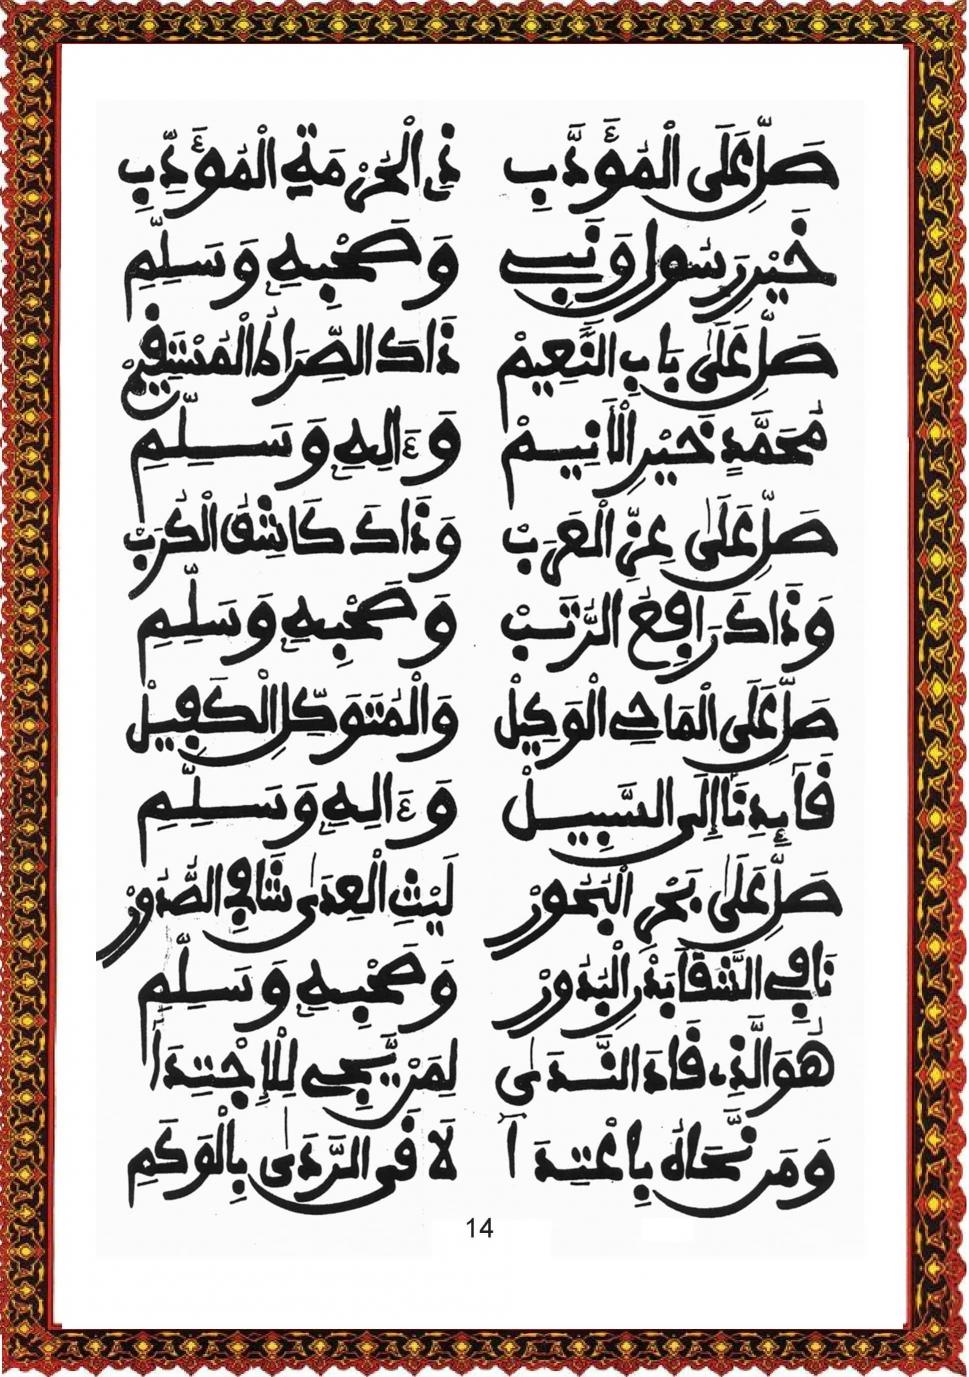 صَلِّ عَلَى الْمُؤَدَّبِ ذِي الْحُرْمَةِ الْمُؤَدِّبِ
خَيْرِ رَسُولٍ وَنَبِي وَصَحْبِهِ وَسَلِّمِ
صَلِّ عَلَى بَابِ النَّعِيمْ ذَاكَ الصِّرَاطُ الْمُسْتَقِيمْ
مُحَمَّدٍ خَيْرِ الْأَنِيمْ وَءَالِهِ وَسَلِّمِ
صَلِّ عَلَى عِزِّ الْعَرَبْ وَذَاكَ كَاشِفُ الْكُرَبْ
وَذَاكَ رَافِعُ الرُّتَبْ وَصَحْبِهِ وَسَلِّمِ
صَلِّ عَلَى الْمَاحِي الْوَكِيلْ وَالْمُتَوَكِّلِ الْكَفِيلْ
قَائِدِنَا إِلَى السَّبِيلْ وَءَالِهِ وَسَلِّمِ
صَلِّ عَلَى بَحْرِ الْبُحُورْ لَيْثِ الْعِدَى شَافِي الصُّدُورْ
نَافِي الشَّقَا بَدْرِ الْبُدُورْ وَصَحْبِهِ وَسَلِّمِ
هُوَ الَّذِي قَادَ النَّدَى لِمَنْ يَّجِي لِلْإِجْتِدَا
وَمَن نَّحَاهُ بِاعْتِدَا لَاقَى الرَّدَى بِالْوَكَمِ
14